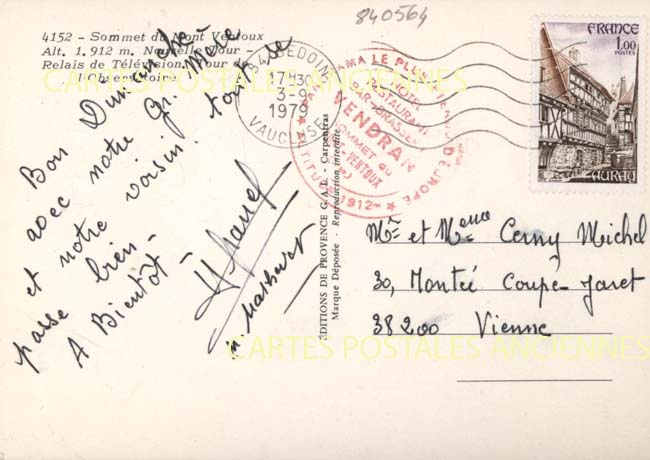 840564
4152 - Sommet du Mont Ventoux
Alt. 1.912 m. Nouvelle Tour -
Relais de Télévision. Tour de
l'Observatoire
CARTES POSTALES ANCIENNES
Bon Dimanche
avec notre Gr. Mère
et notre voisin. tout se
passe bien -
A Bientôt -
EDITIONS DE PROVENCE G.A.L. - Carpentras
Marque Déposée - Reproduction interdite
84 BEDOIN
17H30
3-9
1979
VAUCLUSE
PANORAMA LE PLUS D'EUROPE
HOTEL
RESTAURANT
BAR-BRASSERIE
VENDRAN
SOMMET du
VENTOUX
ALTITUDE 1912m
FRANCE
1,00
POSTES
AURAY
Mr et Mme Cerny Michel
30, Montée Coupe-Jaret
38200 Vienne
CARTES POSTALES ANCIENNES